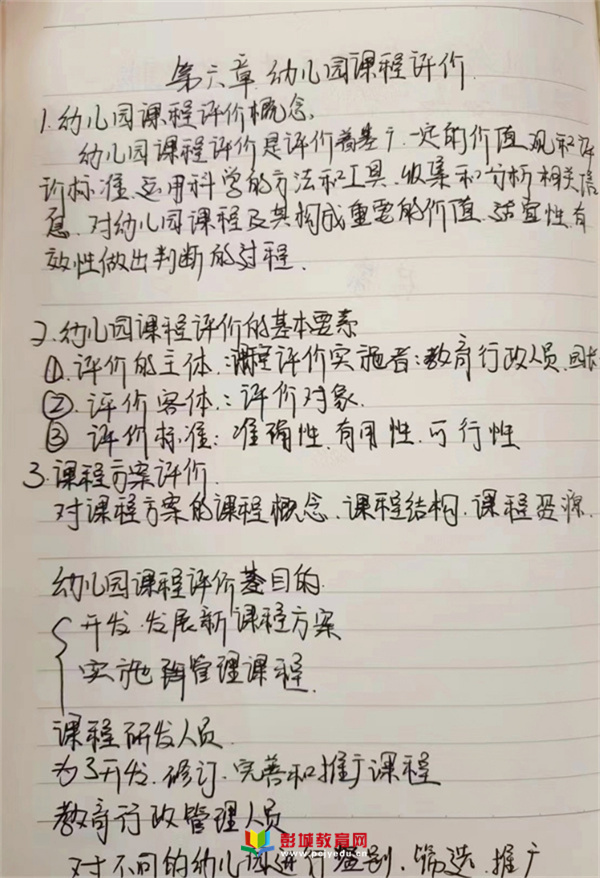 第六章 幼儿园课程评价
1.幼儿园课程评价概念.
幼儿园课程评价是评价者基于一定的价值观和评
价标准.运用科学的方法和工具.收集和分析相关信
息.对幼儿园课程及其构成重要的价值.适宜性.有
效性做出判断的过程.
2.幼儿园课程评价的基本要素
①.评价的主体.:课程评价实施者:教育行政人员.园长
②.评价客体.:评价对象.
③ 评价标准:准确性.有用性.可行性
3.课程方案评价.
对课程方案的课程概念.课程结构.课程资源.
幼儿园课程评价目的.
开发.发展新课程方案
实施 管理课程.
课程研发人员.
为了开发.修订.完善和推广课程
教育行政管理人员
对不同的幼儿园进行鉴别.筛选.推广
彭城教育网
www.pcjyedu.com